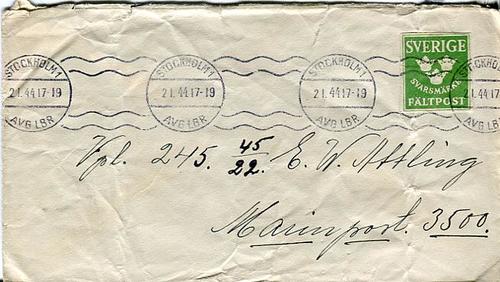 STOCKHOLM 1
2 1. 44 17-19
AVG LBR
STOCKHOLM 1
2 1. 44 17-19
AVG LBR
STOCKHOLM 1
2 1. 44 17-19
AVG LBR
STOCKHOLM
2 1. 44 17
AVG LBR
SVERIGE
SVARSMÄRKE
FÄLTPOST
Vpl. 245. 45/22. E. W. Attling
Marinpost. 3500.